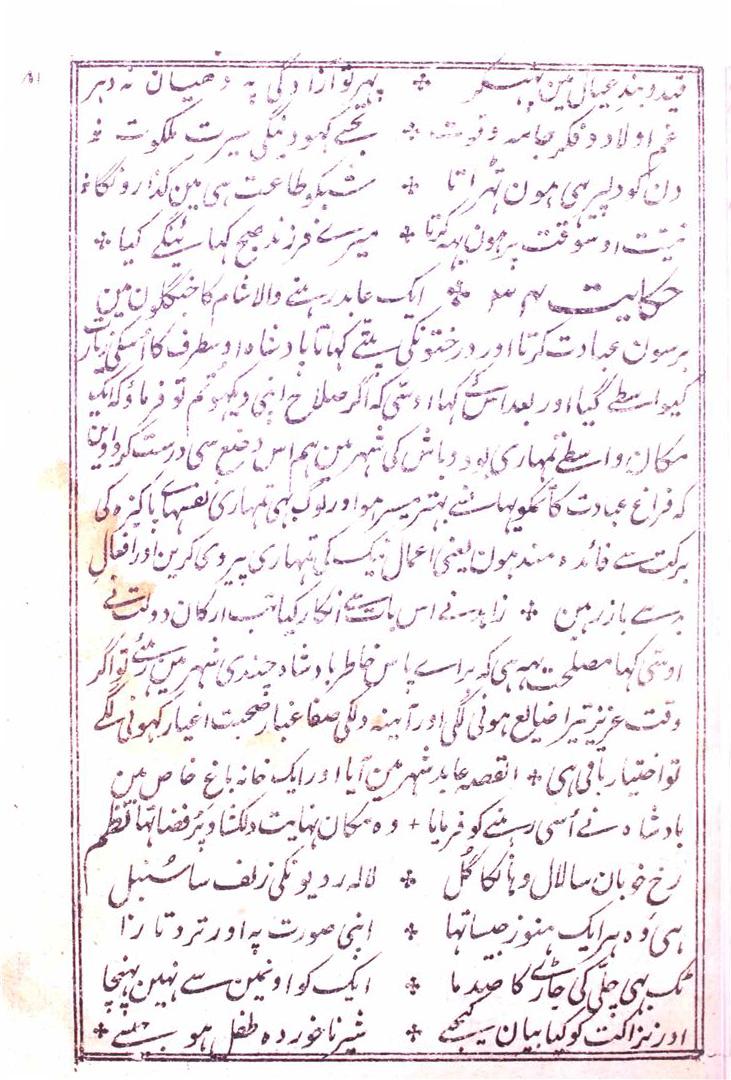 ۸۱
قید و بند عیال مین پہنسکر ❖ پہر تو آزادگی پہ دھیان نہ دہر
غم اولاد و فکر جامہ و قوت ❖ تجھے کہو دینگی سیرت ملکوت
دن کو دلپر یہی ہون ٹھراتا ❖ شبکو طاعت ہی مین گذارونگا
نیت اوسوقت پر ہون یہہ کرتا ❖ میرے فرزند صبح کہائینگے کیا ❖
حکایت ۳۴ ❖ ایک عابد رہنے والا شام کا جنگلون مین
برسون عبادت کرتا اور درختونکی پتے کہاتا بادشاہ اوسطرف کا اُسکی زیارت
کیواسطے گیا اور بعد اس کے کہا اوسی کہ اگر صلاح اپنی دیکہو تم تو فرماؤ کہ ایک
مکان واسطے تمہاری بود و باش کی شہر مین ہم اس وضع سی درست کروا دین
کہ فراغ عبادت کا تمکو یہانسے بہتر میسر ہو اور لوگ بہی تمہاری نفسہاے پاکیزہ کی
برکت سے فائدہ مند ہون یعنی اعمال نیک کی تمہاری پیروی کرین اور افعال
بد سے باز رہین ❖ زاہد نے اس بات سے انکار کیا تب ارکان دولت نے
اوسی کہا مصلحت یہہ ہی کہ براے پاس خاطر بادشاہ چندی شہر مین رہئے تو اگر
وقت عزیز تیرا ضایع ہونی لگی اور آئینہ دلکی صفا غبار صحبت اغیار کہونی لگے
تو اختیار باقی ہی ❖ القصہ عابد شہر مین آیا اور ایک خانہ باغ خاص مین
بادشاہ نے اُسی رہنے کو فرمایا + وہ مکان نہایت دلکشا و پر فضا تہا نظم
رخ خوبان سا لال وہانکا گُل ❖ لالہ رویونکی زلف سا سُنبل
ہی وہ ہر ایک ہنوز جیسا تہا ❖ اپنی صورت پہ اور تر و تازا
ٹک بہی چلّی کی جاڑے کا صدما ❖ ایک کو اونمین سے نہین پہنچا
اور نزاکت کو کیا بیان کیجے ❖ شیر ناخوردہ طفل ہو جیسے ❖